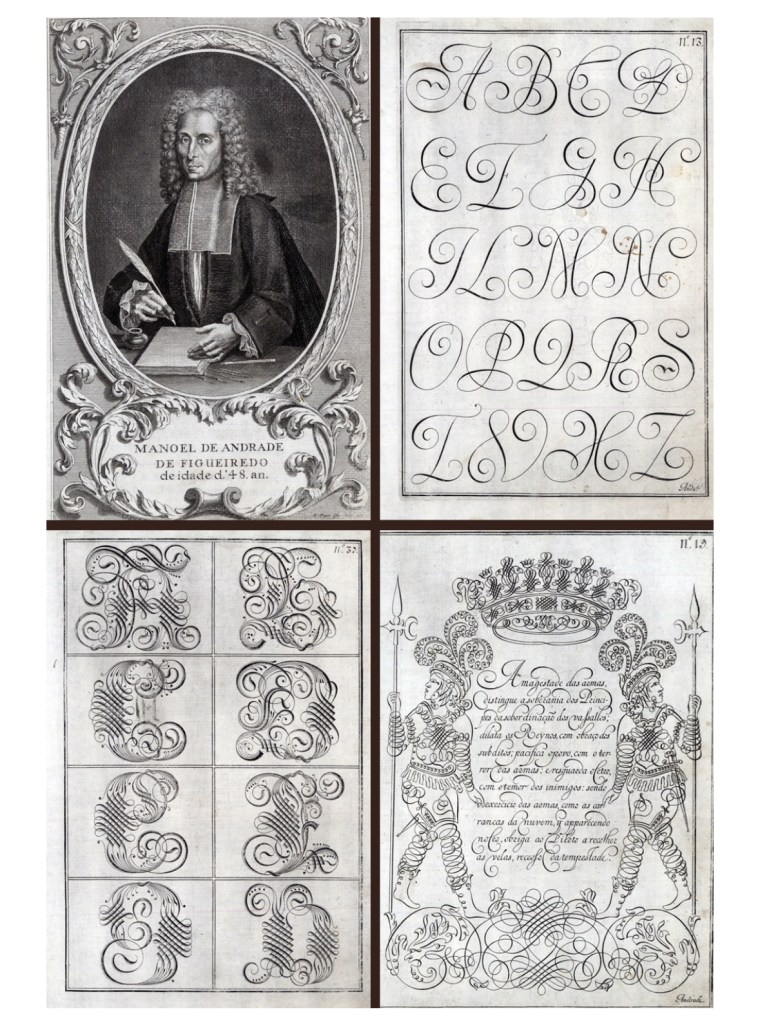 MANOEL DE ANDRADE
DE FIGUEIREDO
de idade d.' 48. an.
Nº. 13.
A B C D
E F G H
I L M N
O P Q R S
T V X Z
A B
C D
E F
G H
Nº. 19.
A magestade das armas,
distingue a soberania dos Princi-
pes da sobordinação dos vassallos;
dilata os Reynos, com obraço dos
subditos; pacifica opovo, com o ter-
ror das armas; e resguarda
com otemor dos inimigos: sendo
oexercicio das armas, como as car-
rancas da nuvem, q̃ apparecendo
obriga ao Piloto a recolher
as velas, receoso da tempestade.
Andrade